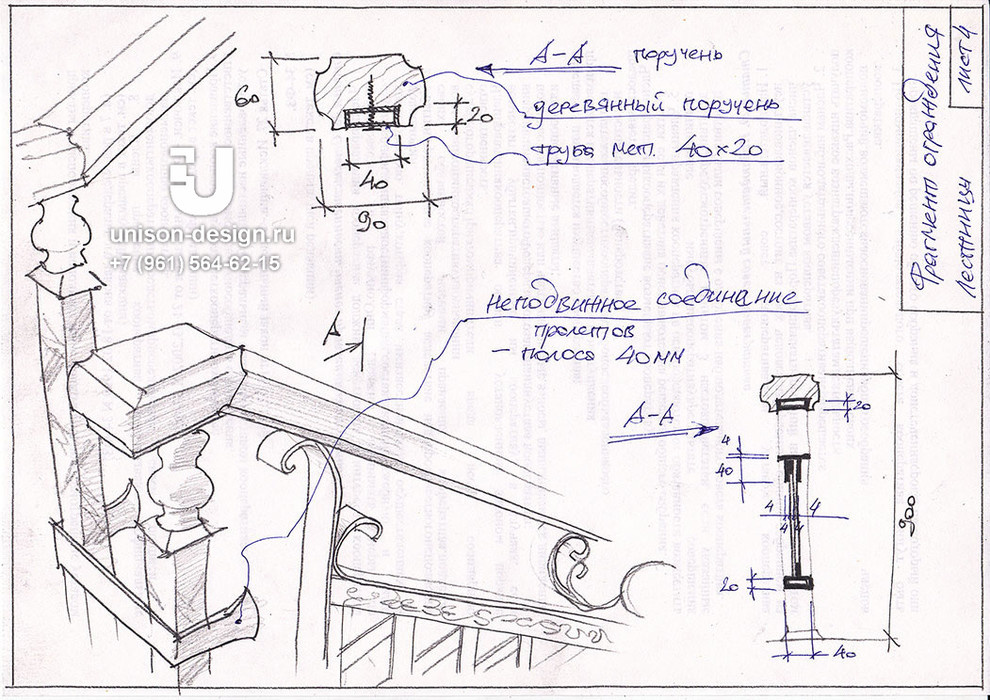 А-А поручень
60
деревянный поручень
20
труба мет. 40х20
40
90
Фрагмент ограждения
Лестницы
лист 4
U
unison-design.ru
+7 (961) 564-62-15
Неподвижное соединание
пролетов
- полоса 40мм
А
А-А
20
4
40
4
4
4
4
900
20
40